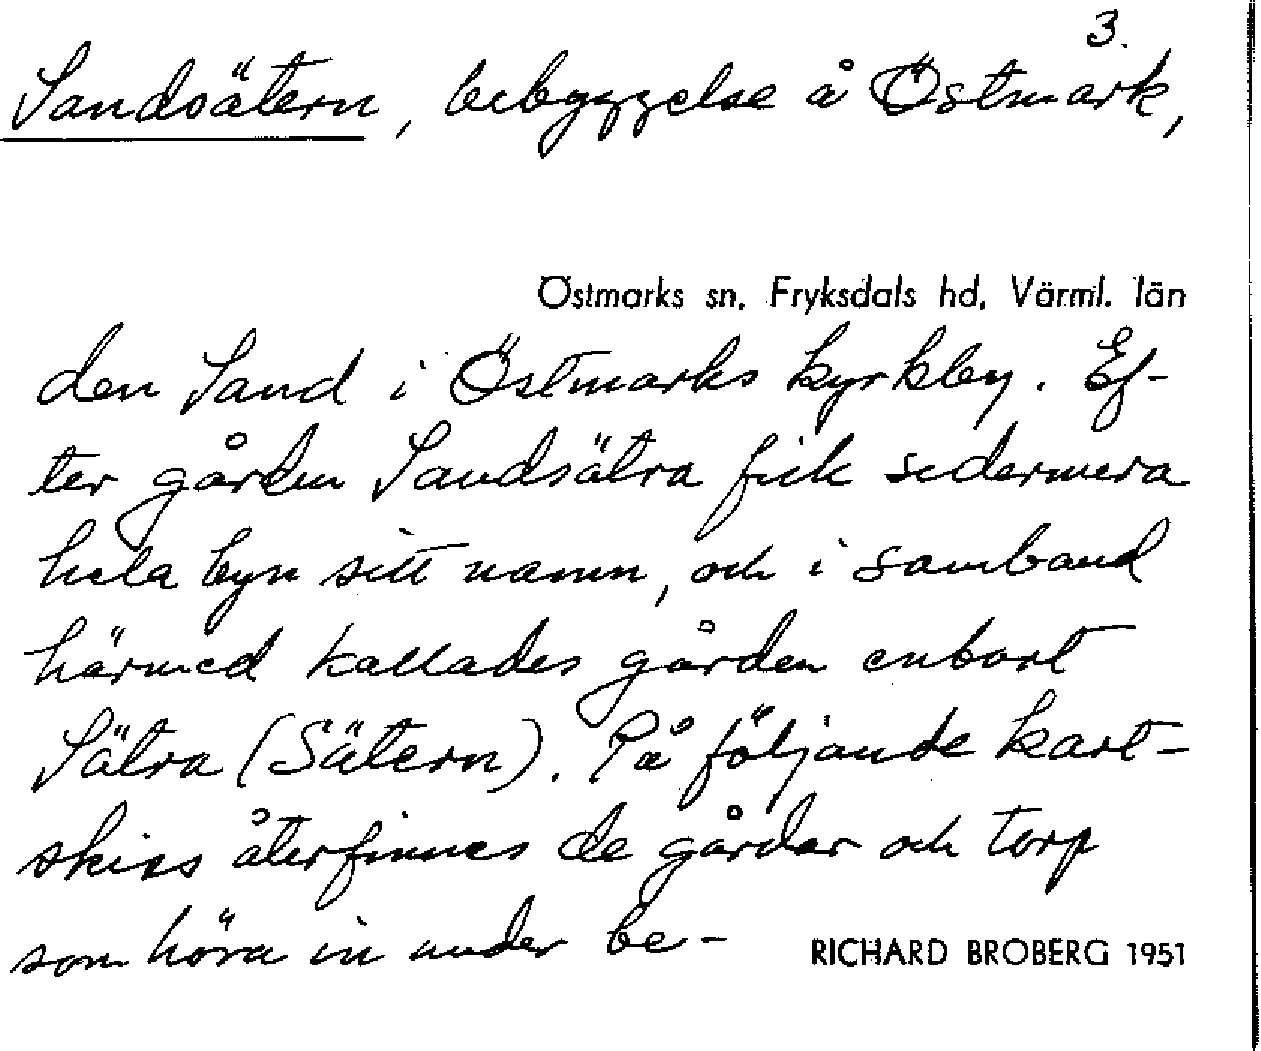 3.
Sandsätern, bebyggelse å Östmark,
Östmarks sn. Fryksdals hd. Värml. län
den Sand i Östmarks kyrkby. Ef-
ter gården Sandsätra fick sedermera
hela byn sitt namn, och i samband
härmed kallades gården enbart
Sätra (Sätern). På följande kart-
skiss återfinnes de gårdar och torp
som höra in under be-
RICHARD BROBERG 1951